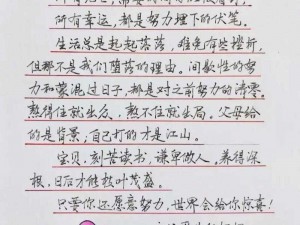 所有幸运，都是努力埋下的伏笔。
生活总是起起落落，难免有些挫折，
但那不是我们堕落的理由。间歇性的努
力和蒙混过日子，都是对之前努力的清零。
熬得住就出众，熬不住就出局。父母给
的是背景，自己打的才是江山。
宝贝，刻苦读书，谦卑做人，养得深
根，日后才能枝叶茂盛。
只要你还愿意努力，世界会给你惊喜！